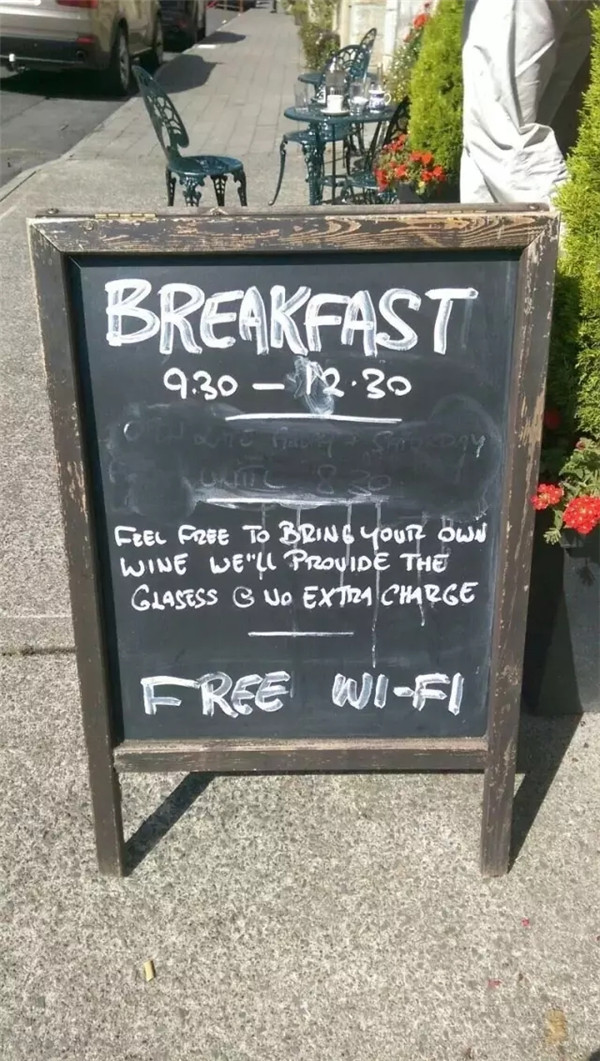 BREAKFAST
9.30 – 12.30
SATURDAY
UNTIL 8.30
FEEL FREE TO BRING YOUR OWN
WINE WE"LL PROVIDE THE
GLASESS @ NO EXTRA CHARGE
FREE WI-FI